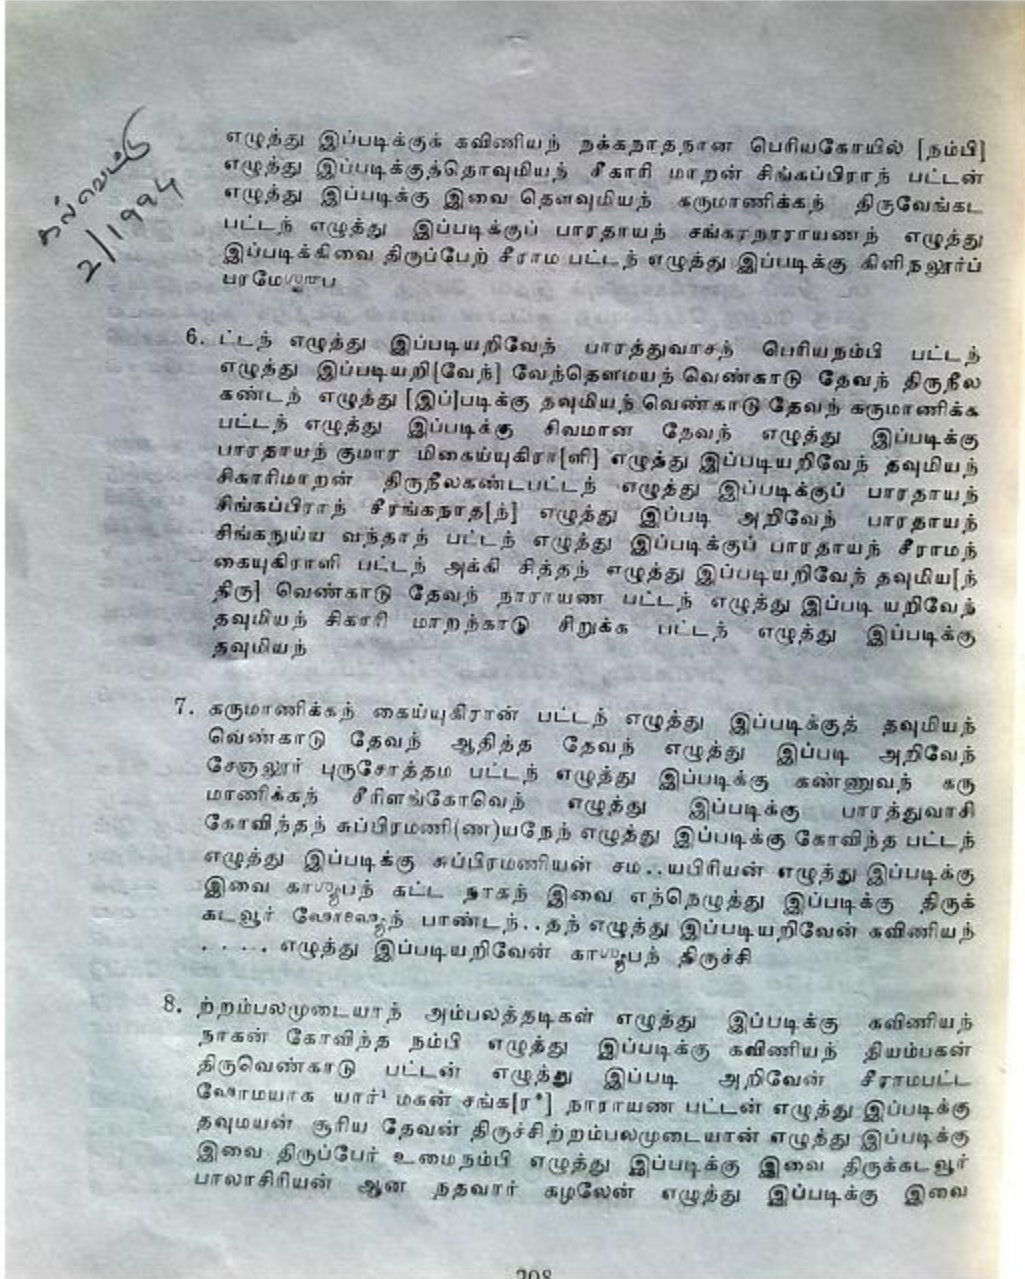 கல்வெட்டு
2/1994
எழுத்து இப்படிக்குக் கவிணியந் நக்கநாதநான பெரியகோயில் [நம்பி]
எழுத்து இப்படிக்குத்தொவுமியந் சீகாரி மாறன் சிங்கப்பிராந் பட்டன்
எழுத்து இப்படிக்கு இவை தௌவுமியந் கருமாணிக்கந் திருவேங்கட
பட்டந் எழுத்து இப்படிக்குப் பாரதாயந் சங்கரநாராயணந் எழுத்து
இப்படிக்கிவை திருப்பேற் சீராம பட்டந் எழுத்து இப்படிக்கு கிளிநலூர்ப்
6. ட்டந் எழுத்து இப்படியறிவேந் பாரத்துவாசந் பெரியநம்பி பட்டந்
எழுத்து இப்படியறி[வேந்] வேந்தௌமயந் வெண்காடு தேவந் திருநீல
கண்டந் எழுத்து [இப்]படிக்கு தவுமியந் வெண்காடு தேவந் கருமாணிக்க
பட்டந் எழுத்து இப்படிக்கு சிவமான தேவந் எழுத்து இப்படிக்கு
பாரதாயந் குமார மிகைய்யுகிரா[ளி] எழுத்து இப்படியறிவேந் தவுமியந்
சிகாரிமாறன் திருநீலகண்டபட்டந் எழுத்து இப்படிக்குப் பாரதாயந்
சிங்கப்பிராந் சீரங்கநாத[ந்] எழுத்து இப்படி அறிவேந் பாரதாயந்
சிங்கநுய்ய வந்தாந் பட்டந் எழுத்து இப்படிக்குப் பாரதாயந் சீராமந்
கையுகிராளி பட்டந் அக்கி சித்தந் எழுத்து இப்படியறிவேந் தவுமிய[ந்
திரு] வெண்காடு தேவந் நாராயண பட்டந் எழுத்து இப்படி யறிவேந்
தவுமியந் சிகாரி மாறந்காடு சிறுக்க பட்டந் எழுத்து இப்படிக்கு
தவுமியந்
7. கருமாணிக்கந் கைய்யுகிரான் பட்டந் எழுத்து இப்படிக்குத் தவுமியந்
வெண்காடு தேவந் ஆதித்த தேவந் எழுத்து இப்படி அறிவேந்
சேஞலூர் புருசோத்தம பட்டந் எழுத்து இப்படிக்கு கண்ணுவந் கரு
மாணிக்கந் சீரிளங்கோவெந் எழுத்து இப்படிக்கு பாரத்துவாசி
கோவிந்தந் சுப்பிரமணி(ண)யநேந் எழுத்து இப்படிக்கு கோவிந்த பட்டந்
எழுத்து இப்படிக்கு சுப்பிரமணியன் சம..யபிரியன் எழுத்து இப்படிக்கு
இவை கட்ட நாகந் இவை எந்நெழுத்து இப்படிக்கு திருக்
கடவூர் பாண்டந்..தந் எழுத்து இப்படியறிவேன் கவிணியந்
. . . .. எழுத்து இப்படியறிவேன் திருச்சி
8. ற்றம்பலமுடையாந் அம்பலத்தடிகள் எழுத்து இப்படிக்கு கவிணியந்
நாகன் கோவிந்த நம்பி எழுத்து இப்படிக்கு கவிணியந் தியம்பகன்
திருவெண்காடு பட்டன் எழுத்து இப்படி அறிவேன் சீராமபட்ட
யார்¹ மகன் சங்க[ர*] நாராயண பட்டன் எழுத்து இப்படிக்கு
தவுமயன் சூரிய தேவன் திருச்சிற்றம்பலமுடையான் எழுத்து இப்படிக்கு
இவை திருப்பேர் உமைநம்பி எழுத்து இப்படிக்கு இவை திருக்கடவூர்
பாலாசிரியன் ஆன நதவார் கழலேன் எழுத்து இப்படிக்கு இவை
208